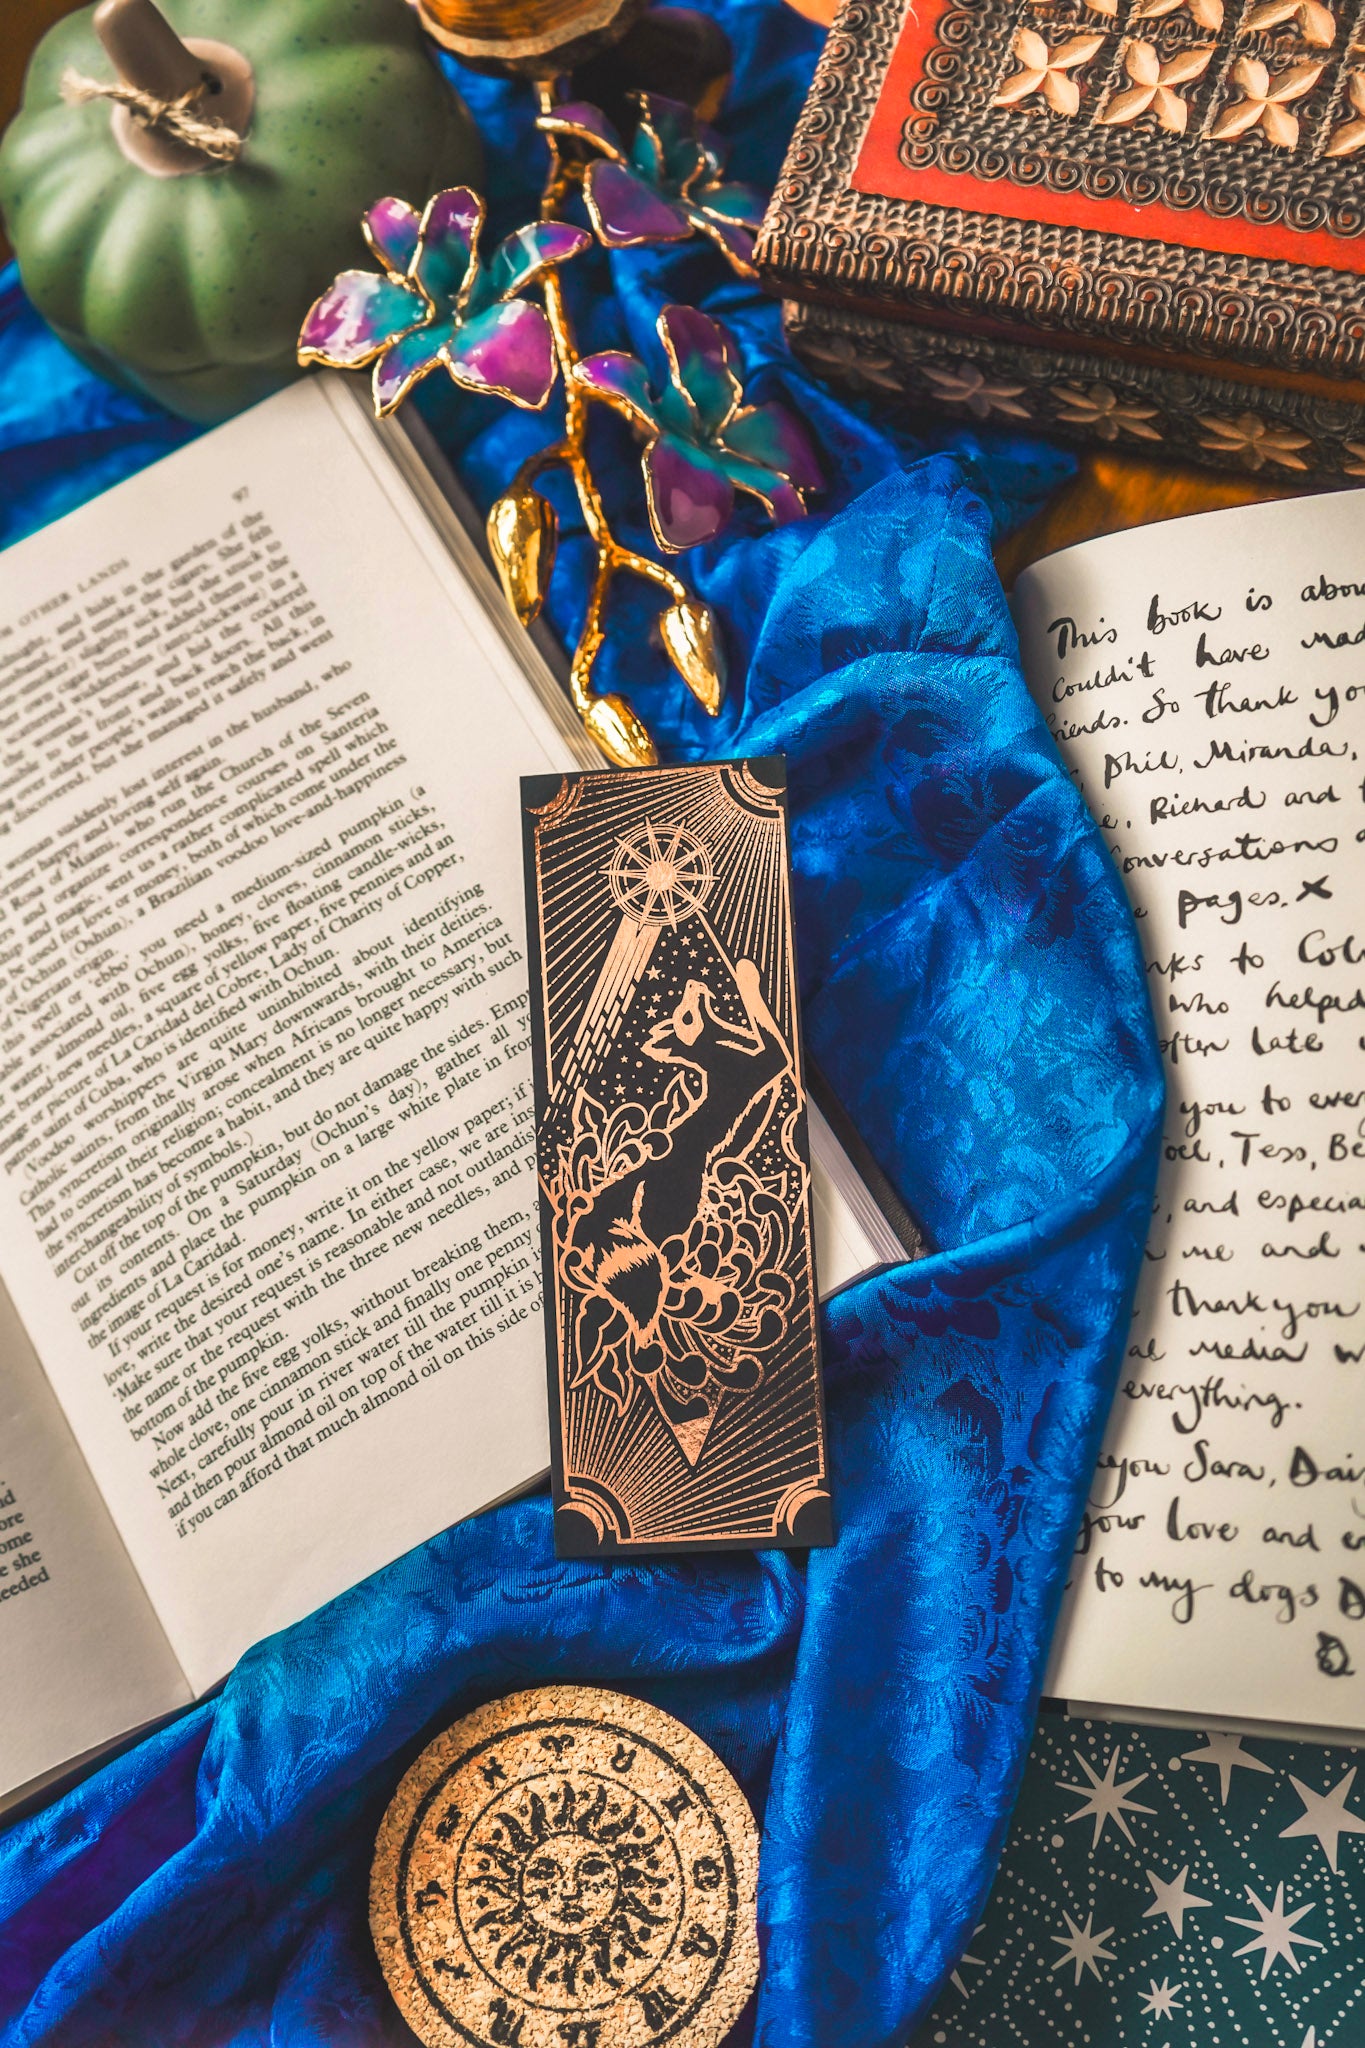 97
OTHER LANDS
and hide in the garden of the
and smoke the cigars. She felt
slightly sick, but she stuck to
her own cigar butts and added them to the
widdershins (anti-clockwise) in a
front and back doors. All this
other people's walls to reach the back, in
being discovered, but she managed it safely and went
woman entirely lost interest in the husband, who
former happy and loving self again.
Rosa of Miami, who run the Church of the Seven
and organize correspondence courses on Santeria
and magic, sent us a rather complicated spell which
be used for love or money, both of which come under the
of Ochun (Oshun), a Brazilian voodoo love-and-happiness
of Nigerian origin.
this spell or 'ebbo' you need a medium-sized pumpkin (a
associated with Ochun), honey, cloves, cinnamon sticks,
water, almond oil, five egg yolks, five floating candle-wicks,
three brand-new needles, a square of yellow paper, five pennies and an
image or picture of La Caridad del Cobre, Lady of Charity of Copper,
patron saint of Cuba, who is identified with Ochun.
(Voodoo worshippers are quite uninhibited about identifying
Catholic saints, from the Virgin Mary downwards, with their deities.
This syncretism originally arose when Africans brought to America
had to conceal their religion; concealment is no longer necessary, but
the syncretism has become a habit, and they are quite happy with such
interchangeability of symbols.)
Cut off the top of the pumpkin, but do not damage the sides.
out its contents. On a Saturday (Ochun's day), gather all
ingredients and place the pumpkin on a large white plate in
the image of La Caridad.
If your request is for money, write it on the yellow paper; if
love, write the desired one's name. In either case, we are
'Make sure that your request is reasonable and not
the name or the request with the three new needles, and
bottom of the pumpkin.
Now add the five egg yolks, without breaking them,
whole clove, one cinnamon stick and finally one penny
Next, carefully pour in river water till the pumpkin is
and then pour almond oil on top of the water till it is
if you can afford that much almond oil on this side of
she
needed
This book is
Couldn't have
friends. So thank
Phil, Miranda,
Richard and
Conversations
pages. x
to
who helped
often late
you to
Tess,
and
me and
thankyou
media
everything.
Sara,
your love and
to my dogs